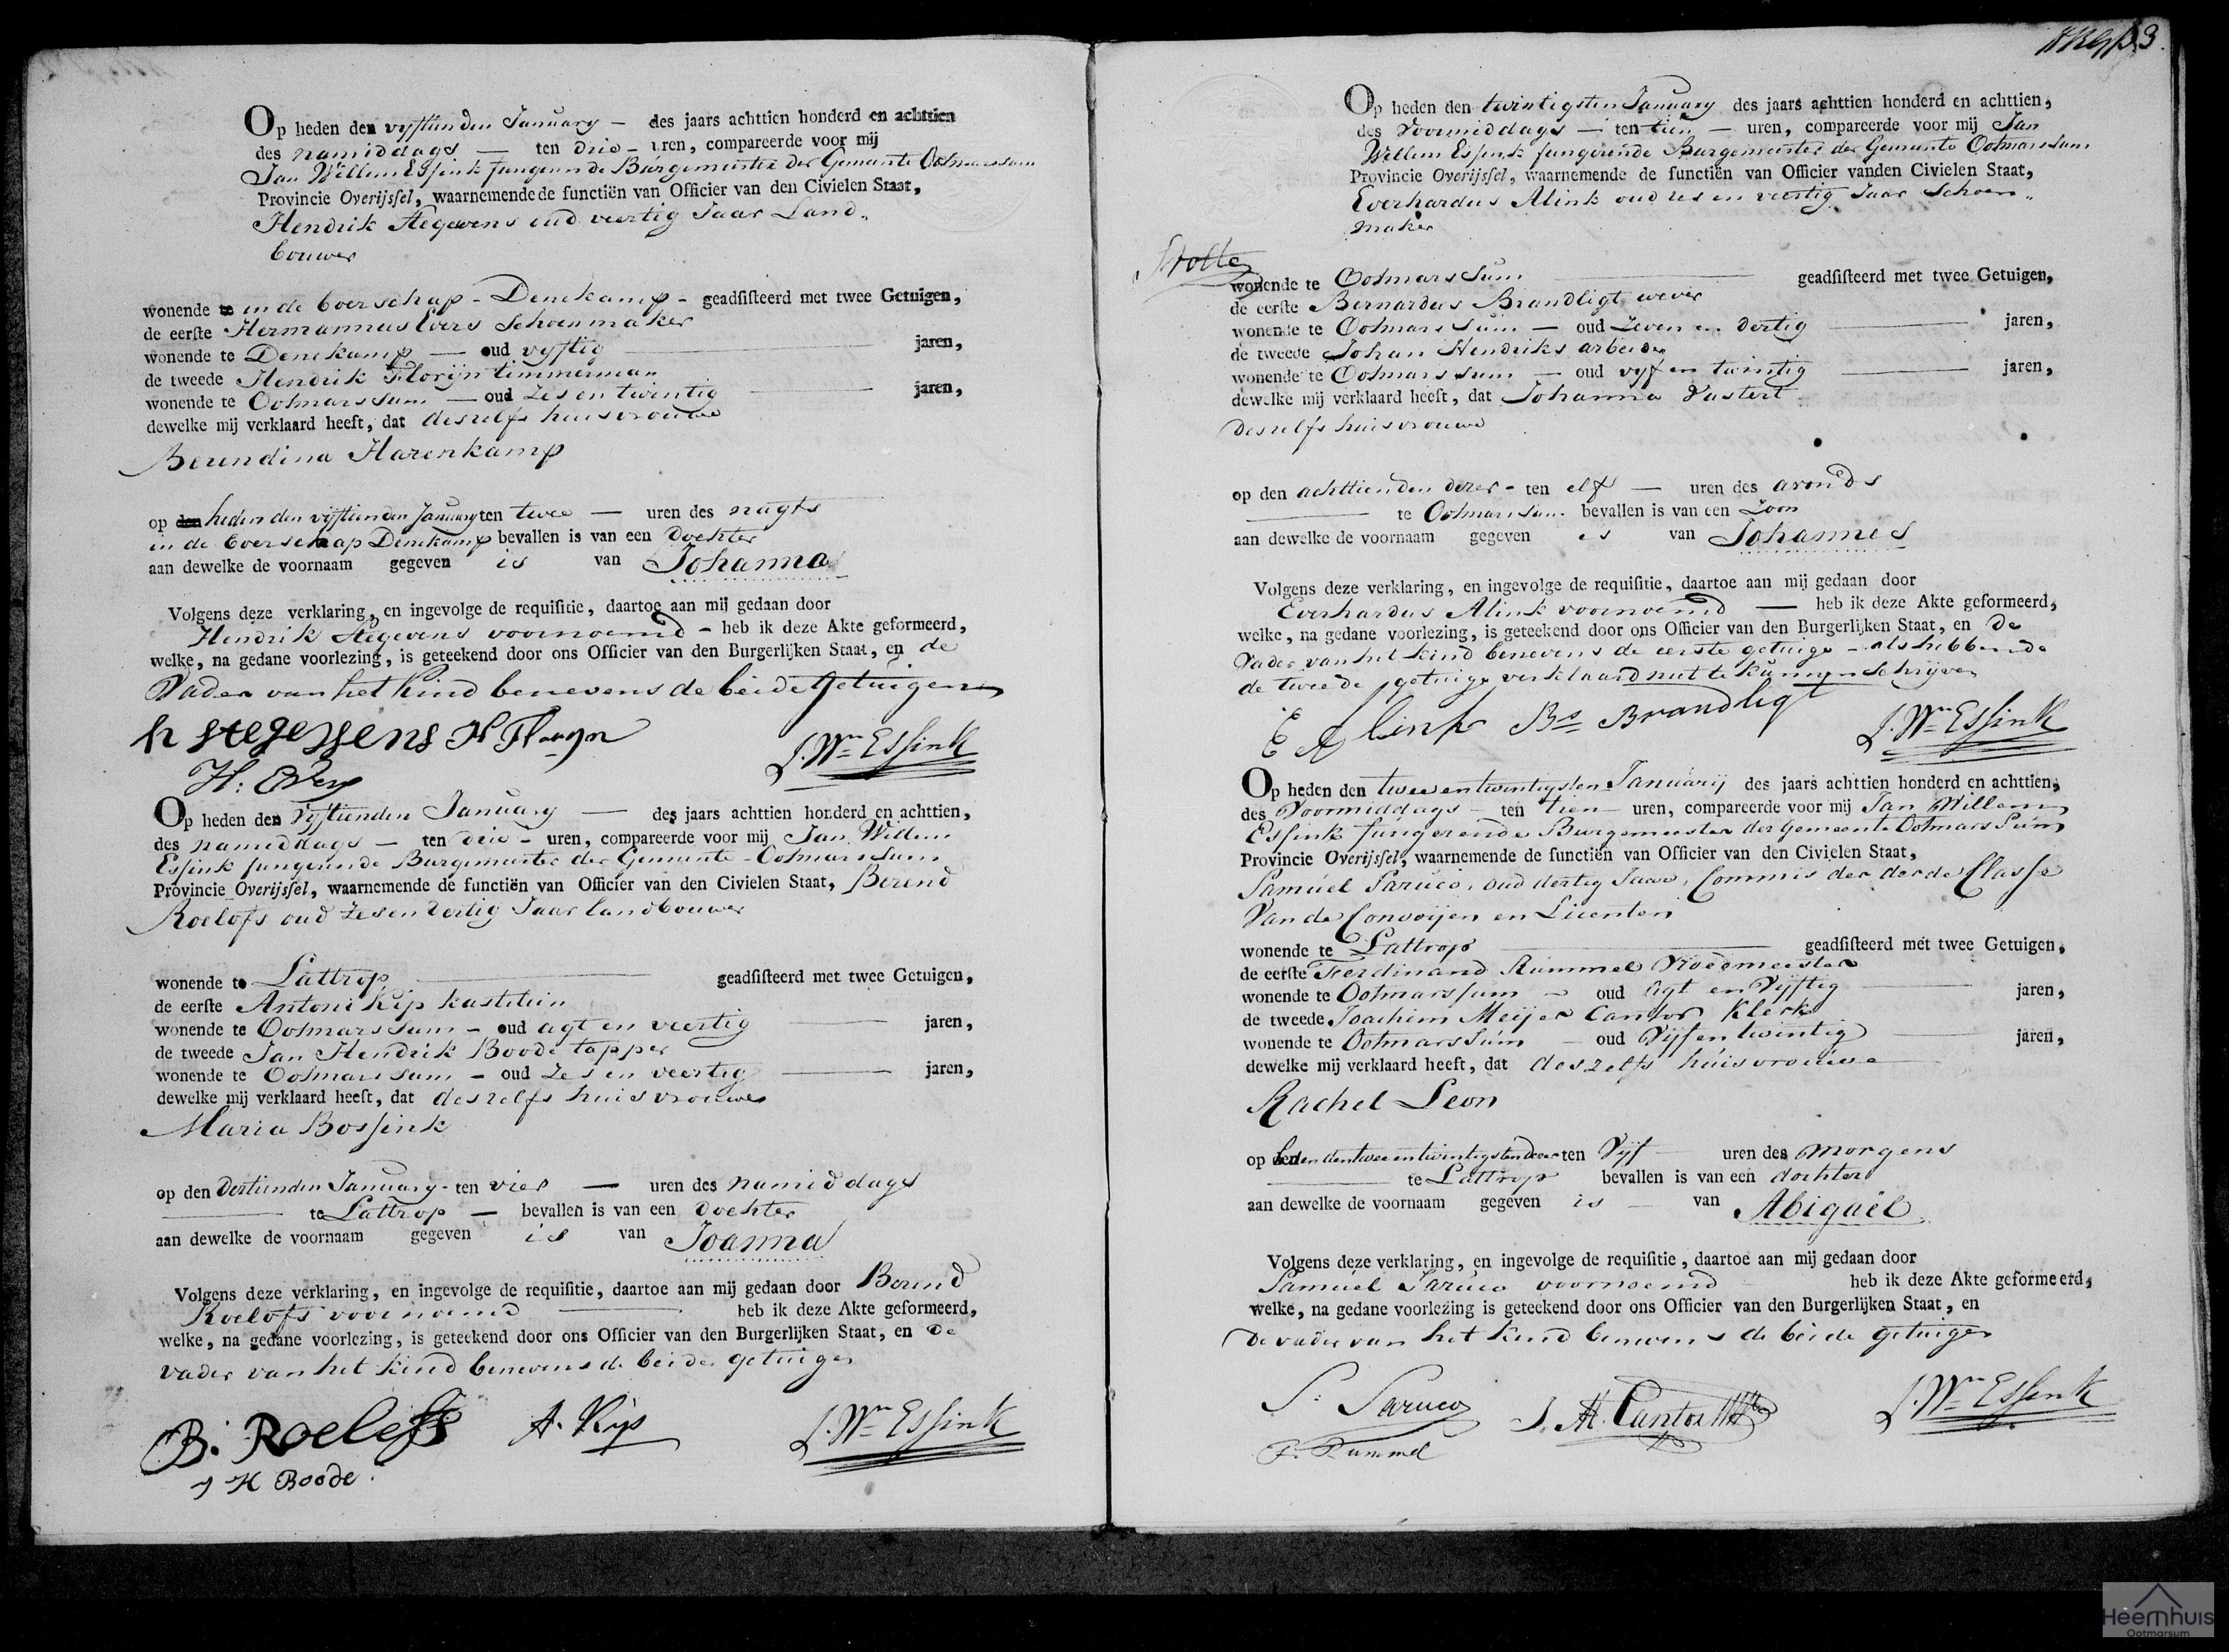 Op heden den vyftienden January — des jaars achttien honderd en achttien
des namiddags — ten drie - uren, compareerde voor mij
Jan Willem Essink fungerende Burgemeester der Gemeente Ootmarssum
Provincie Overijssel, waarnemende de functiën van Officier van den Civielen Staat,
Hendrik Stegevens oud veertig Jaar Land„
bouwer
wonende te in de boerschap - Denekamp - geadsisteerd met twee Getuigen,
de eerste Hermannus Evers Schoenmaker
wonende te Denekamp — oud vyftig — jaren,
de tweede Hendrik Florijn timmerman
wonende te Ootmarssum — oud zes en twintig — jaren,
dewelke mij verklaard heeft, dat deszelfs huisvrouwe
Berendina Harenkamp
op den heden den vyftienden January ten twee — uren des nagts
in de boerschap Denekamp bevallen is van een dochter
aan dewelke de voornaam gegeven is van Johanna
Volgens deze verklaring, en ingevolge de requisitie, daartoe aan mij gedaan door
Hendrik Stegevens voornoemd - heb ik deze Akte geformeerd,
welke, na gedane voorlezing, is geteekend door ons Officier van den Burgerlijken Staat, en de
Vader van het kind benevens de beide getuigen
h stegessens H Florijn J. Wm Essink
H: Evers
Op heden den vyftienden January — des jaars achttien honderd en achttien,
des namiddags — ten drie - uren, compareerde voor mij Jan Willem
Essink fungerende Burgemeester der Gemeente - Ootmarssum
Provincie Overijssel, waarnemende de functiën van Officier van den Civielen Staat, Berend
Roelofs oud zes en dertig Jaar landbouwer
wonende te Lattrop — geadsisteerd met twee Getuigen,
de eerste Antoni Kip kastelein
wonende te Ootmarssum - oud agt en veertig — jaren,
de tweede Jan Hendrik Boode tapper
wonende te Ootmarssum - oud zes en veertig — jaren,
dewelke mij verklaard heeft, dat deszelfs huisvrouwe
Maria Bossink
op den dertienden January - ten vier — uren des namiddags
— te Lattrop — bevallen is van een dochter
aan dewelke de voornaam gegeven is van Joanna
Volgens deze verklaring, en ingevolge de requisitie, daartoe aan mij gedaan door Berend
Roelofs voornoemd — heb ik deze Akte geformeerd,
welke, na gedane voorlezing, is geteekend door ons Officier van den Burgerlijken Staat, en de
vader van het kind benevens de beide getuigen
B. Roelefs A. Kip J. Wm Essink
J H Boode.
3.
Op heden den twintigsten January des jaars achttien honderd en achttien,
des Voormiddags — ten tien — uren, compareerde voor mij Jan
Willem Essink fungerende Burgemeester der Gemeente Ootmarssum
Provincie Overijssel, waarnemende de functiën van Officier vanden Civielen Staat,
Everhardus Alink oud zes en veertig Jaar Schoen„
maker
wonende te Ootmarssum — geadsisteerd met twee Getuigen,
de eerste Bernardus Brandligt wever
wonende te Ootmarssum — oud zeven en dertig — jaren,
de tweede Johan Hendriks arbeider
wonende te Ootmarssum — oud vyf en twintig — jaren,
dewelke mij verklaard heeft, dat Johanna Vastert
deszelfs huisvrouwe
op den achttienden dezer - ten elf — uren des avonds
— te Ootmarssum bevallen is van een Zoon
aan dewelke de voornaam gegeven is van Johannes
Volgens deze verklaring, en ingevolge de requisitie, daartoe aan mij gedaan door
Everhardus Alink voornoemd — heb ik deze Akte geformeerd,
welke, na gedane voorlezing, is geteekend door ons Officier van den Burgerlijken Staat, en de
Vader van het kind benevens de eerste getuige - als hebbende
de tweede getuige verklaard niet te kunnen schrijven
E Alink Bs Brandligt J. Wm Essink
Op heden den tweeentwintigsten Januarij des jaars achttien honderd en achttien,
des Voormiddags — ten tien — uren, compareerde voor mij Jan Willem
Essink fungerende Burgemeester der Gemeente Ootmarssum
Provincie Overijssel, waarnemende de functiën van Officier van den Civielen Staat,
Samuel Saruco, oud dertig Jaar, Commis der derde Classe
Van de Convoijen en Licenten
wonende te Lattrop — geadsisteerd met twee Getuigen,
de eerste Ferdinand Rummel Vroedmeester
wonende te Ootmarssum — oud Agt en Vyftig — jaren,
de tweede Joachim Meijer Cantor Klerk
wonende te Ootmarssum — oud Vijf en twintig — jaren,
dewelke mij verklaard heeft, dat deszelfs huisvrouwe
Rachel Leon
op heden den tweeentwintigsten dezer ten Vyf — uren des morgens
— te Lattrop bevallen is van een dochter
aan dewelke de voornaam gegeven is — van Abigaël
Volgens deze verklaring, en ingevolge de requisitie, daartoe aan mij gedaan door
Samuel Saruco voornoemd heb ik deze Akte geformeerd,
welke, na gedane voorlezing is geteekend door ons Officier van den Burgerlijken Staat, en
de vader van het kind benevens de beide getuigen
S: Saruco J. M. Cantor J. Wm Essink
F. Rummel
Heemhuis
Ootmarsum